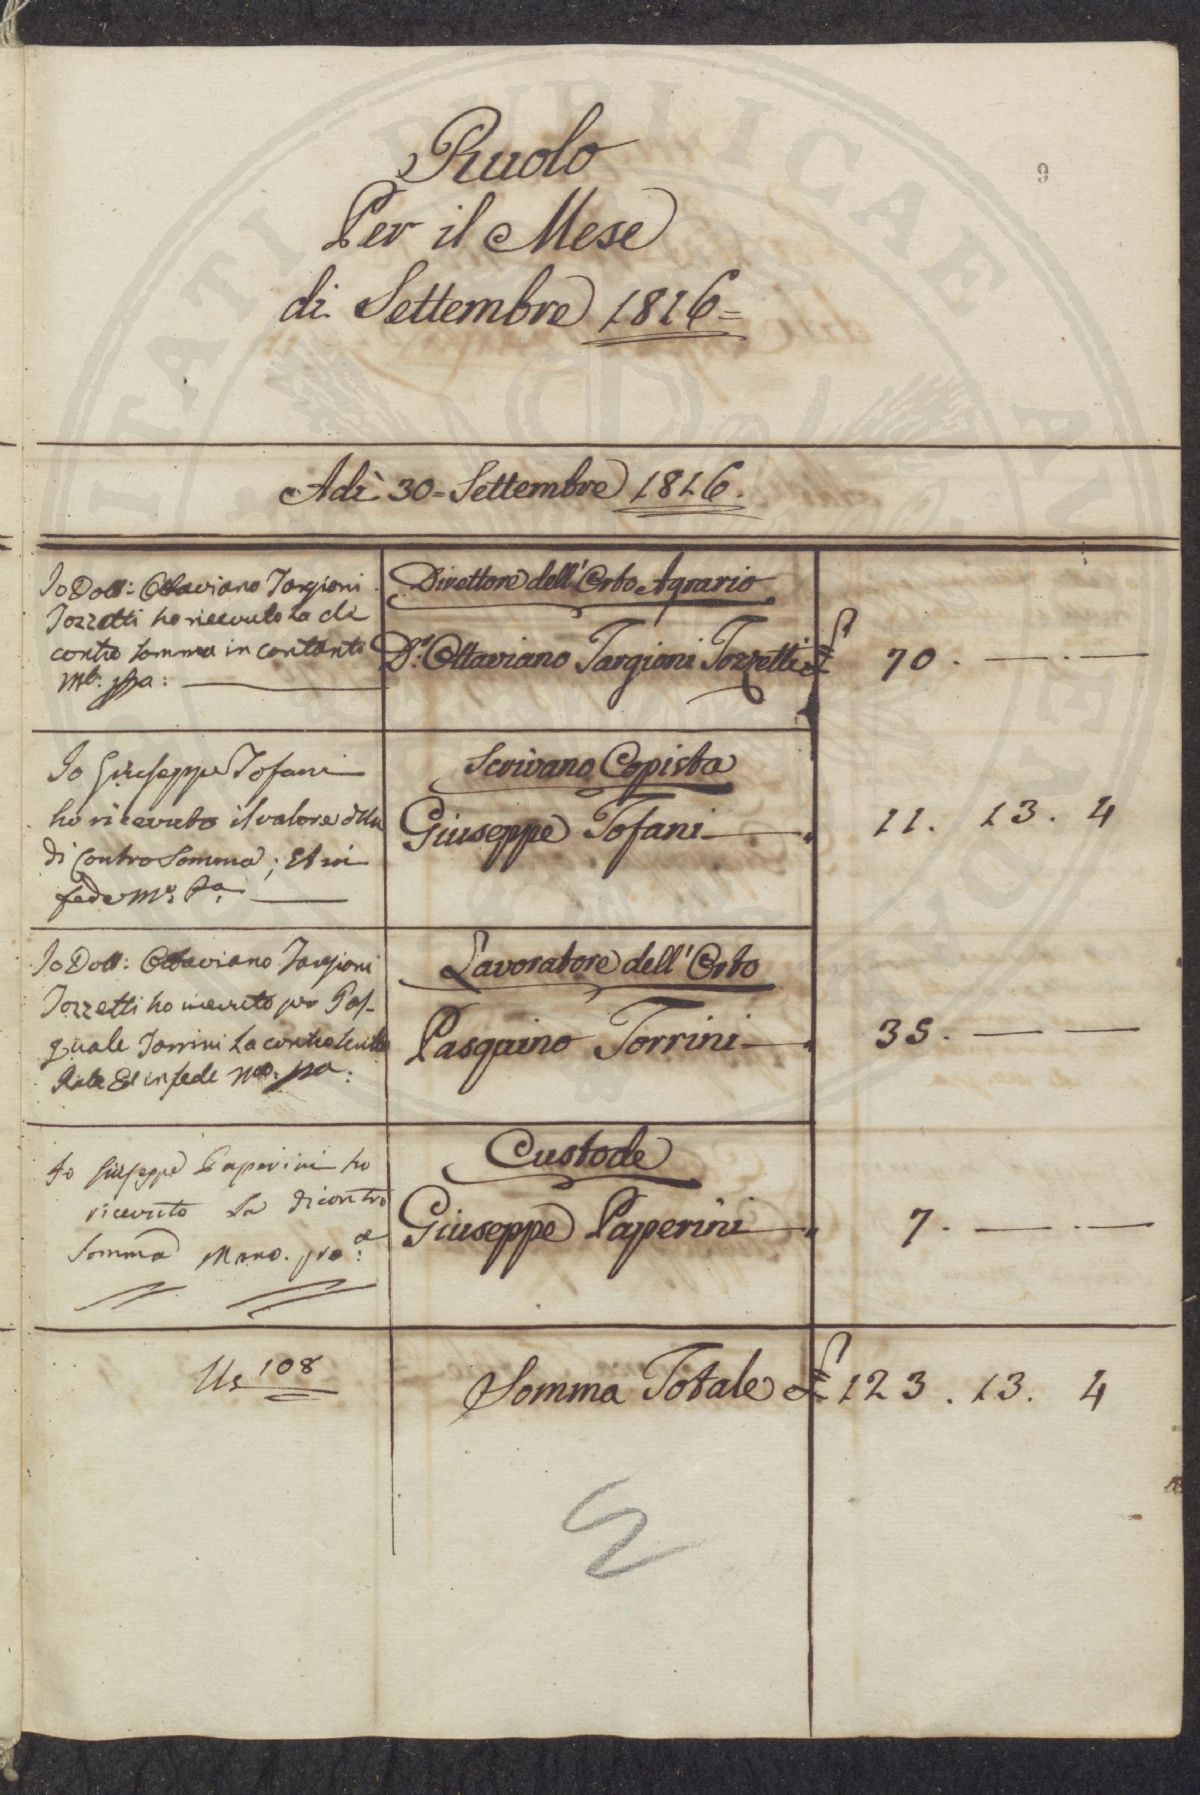 9
Ruolo
Per il Mese
di Settembre 1816=
Adì 30= Settembre 1816.
Io Dott: Ottaviano Targioni
Tozzetti ho ricevuto La di
contro somma in contanti
Mo. ppa:
Direttore dell'Orto Agrario
Dr. Ottaviano Targioni Tozzetti £ 70. — . —
Io Giuseppe Tofani
ho ricevuto il valore della
di Contro Somma; Et in
fede Mo. Pa.
Scrivano Copista
Giuseppe Tofani — 11. 13. 4
Io Dott: Ottaviano Targioni
Tozzetti ho ricevuto per Pas-
quale Torrini La contro scritta
Rata Et in fede Mo. ppa:
Lavoratore dell'Orto
Pasquino Torrini — 35. — —
Io Giuseppe Paperini ho
ricevuto La dicontro
Somma Mano. proa:
Custode
Giuseppe Paperini — 7. — . —
108
Somma Totale £ 123. 13. 4